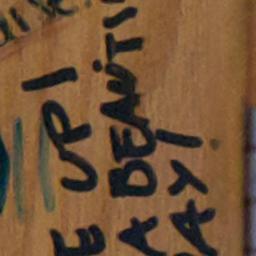 E UP!
A BEAUTI
AY!